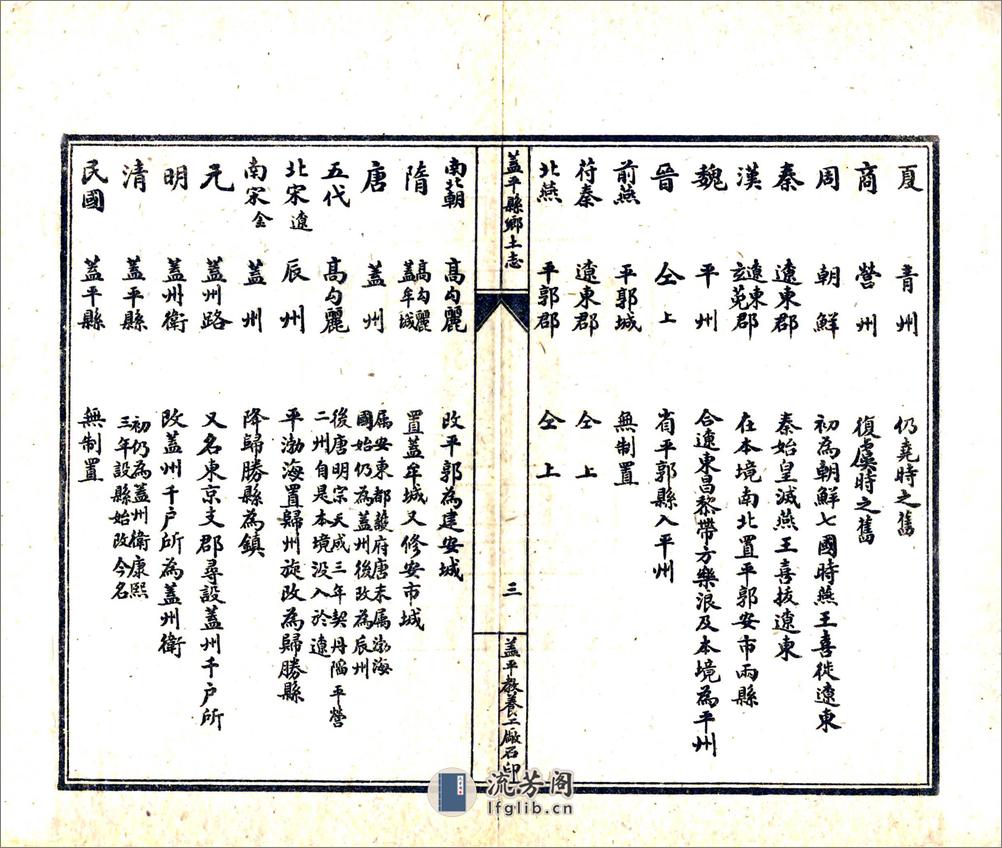 夏 青州 仍堯時之舊
商 營州 復虞時之舊
周 朝鮮 初為朝鮮七國時燕王喜徙遼東
秦 遼東郡 秦始皇滅燕王喜拔遼東
漢 遼東郡 玄菟郡 在本境南北置平郭安市兩縣
魏 平州 合遼東昌黎帶方樂浪及本境為平州
晉 仝上 省平郭縣入平州
前燕 平郭城 無制置
苻秦 遼東郡 仝上
北燕 平郭郡 仝上
蓋平縣鄉土志
三
蓋平教養工廠石印
南北朝 高勾麗 改平郭為建安城
隋 高勾麗 蓋牟城 置蓋牟城又修安市城
唐 蓋州 屬安東都護府唐末屬渤海
國始仍為蓋州後改為辰州
五代 高勾麗 後唐明宗天成三年契丹陷平營
二州自是本境沒入於遼
北宋 遼 辰州 平渤海置歸州旋改為歸勝縣
南宋 金 蓋州 降歸勝縣為鎮
元 蓋州路 又名東京支郡尋設蓋州千戶所
明 蓋州衛 改蓋州千戶所為蓋州衛
清 蓋平縣 初仍為蓋州衛康熙
三年設縣始改今名
民國 蓋平縣 無制置
流芳阁
lfglib.cn